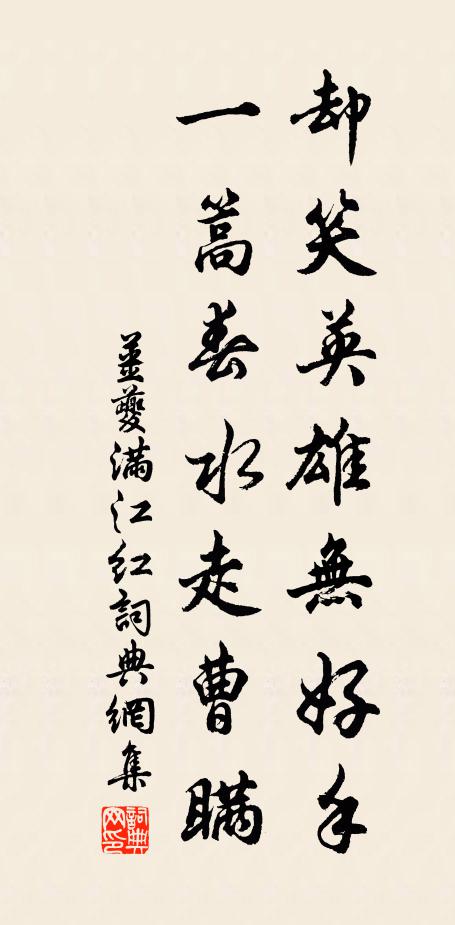 却笑英雄無好手
一篙春水走曹瞞
薑夔满江红詞典網集
詞典网印